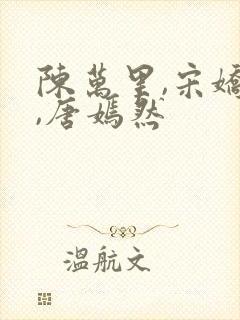 陳萬里,宋嬌
,唐嫣然
溫航文